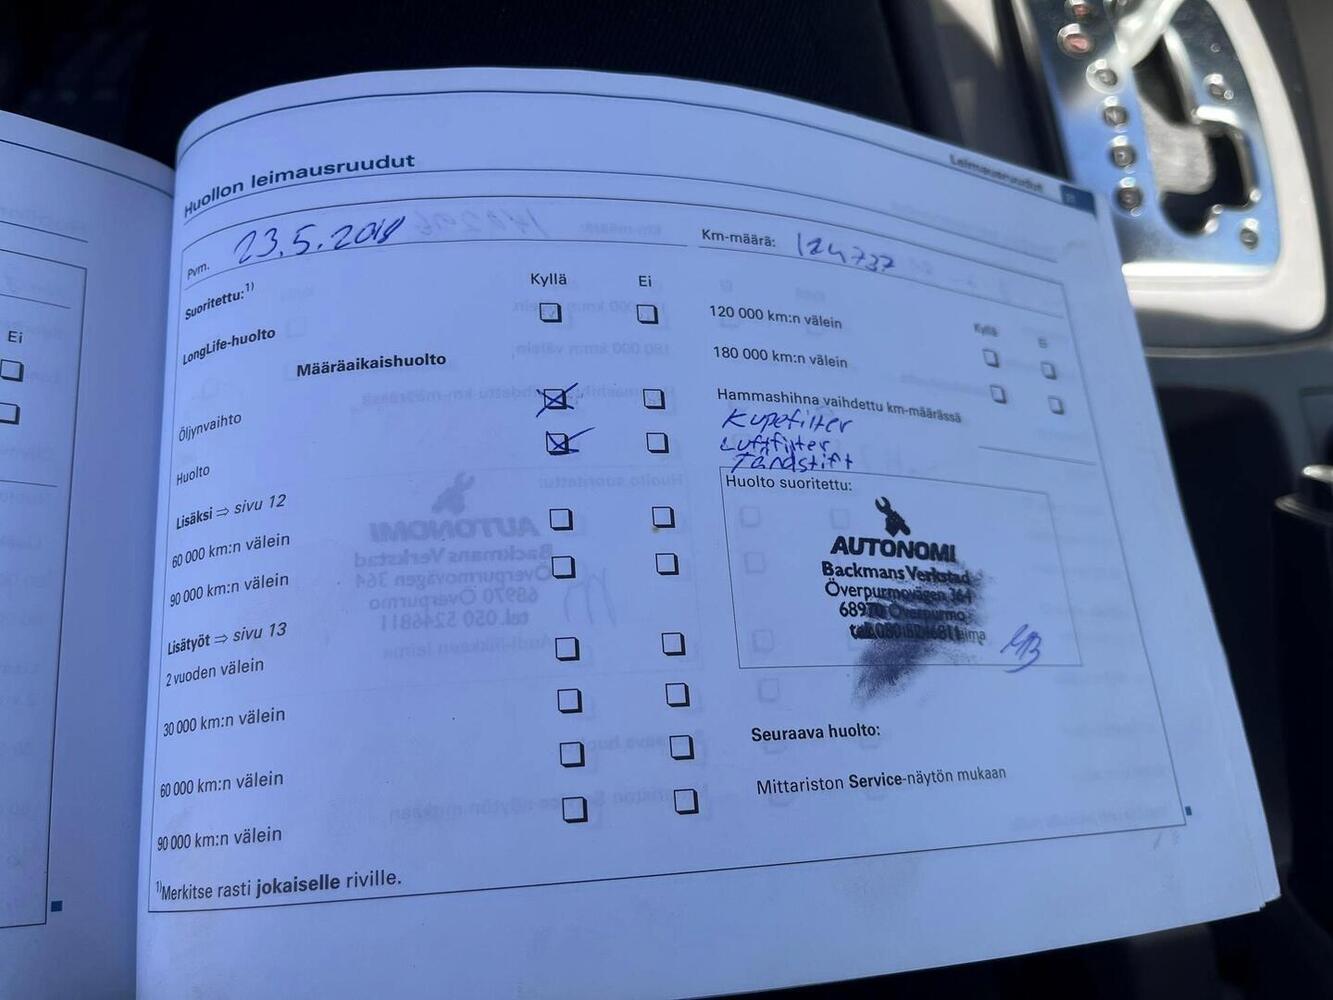 Leimausruudut
Huollon leimausruudut
Pvm. 23.5.2018
Km-määrä: 124737
Suoritettu:1)
Kyllä Ei
LongLife-huolto
Määräaikaishuolto
Öljynvaihto
Huolto
Lisäksi ⇒ sivu 12
60 000 km:n välein
90 000 km:n välein
Lisätyöt ⇒ sivu 13
2 vuoden välein
30 000 km:n välein
60 000 km:n välein
90 000 km:n välein
1)Merkitse rasti jokaiselle riville.
Kyllä Ei
120 000 km:n välein
180 000 km:n välein
Hammashihna vaihdettu km-määrässä
Kupefilter
Luftfilter
Tändstift
Huolto suoritettu:
AUTONOMI
Backmans Verkstad
Överpurmovägen 364
68970 Överpurmo
MB
Seuraava huolto:
Mittariston Service-näytön mukaan
Ei